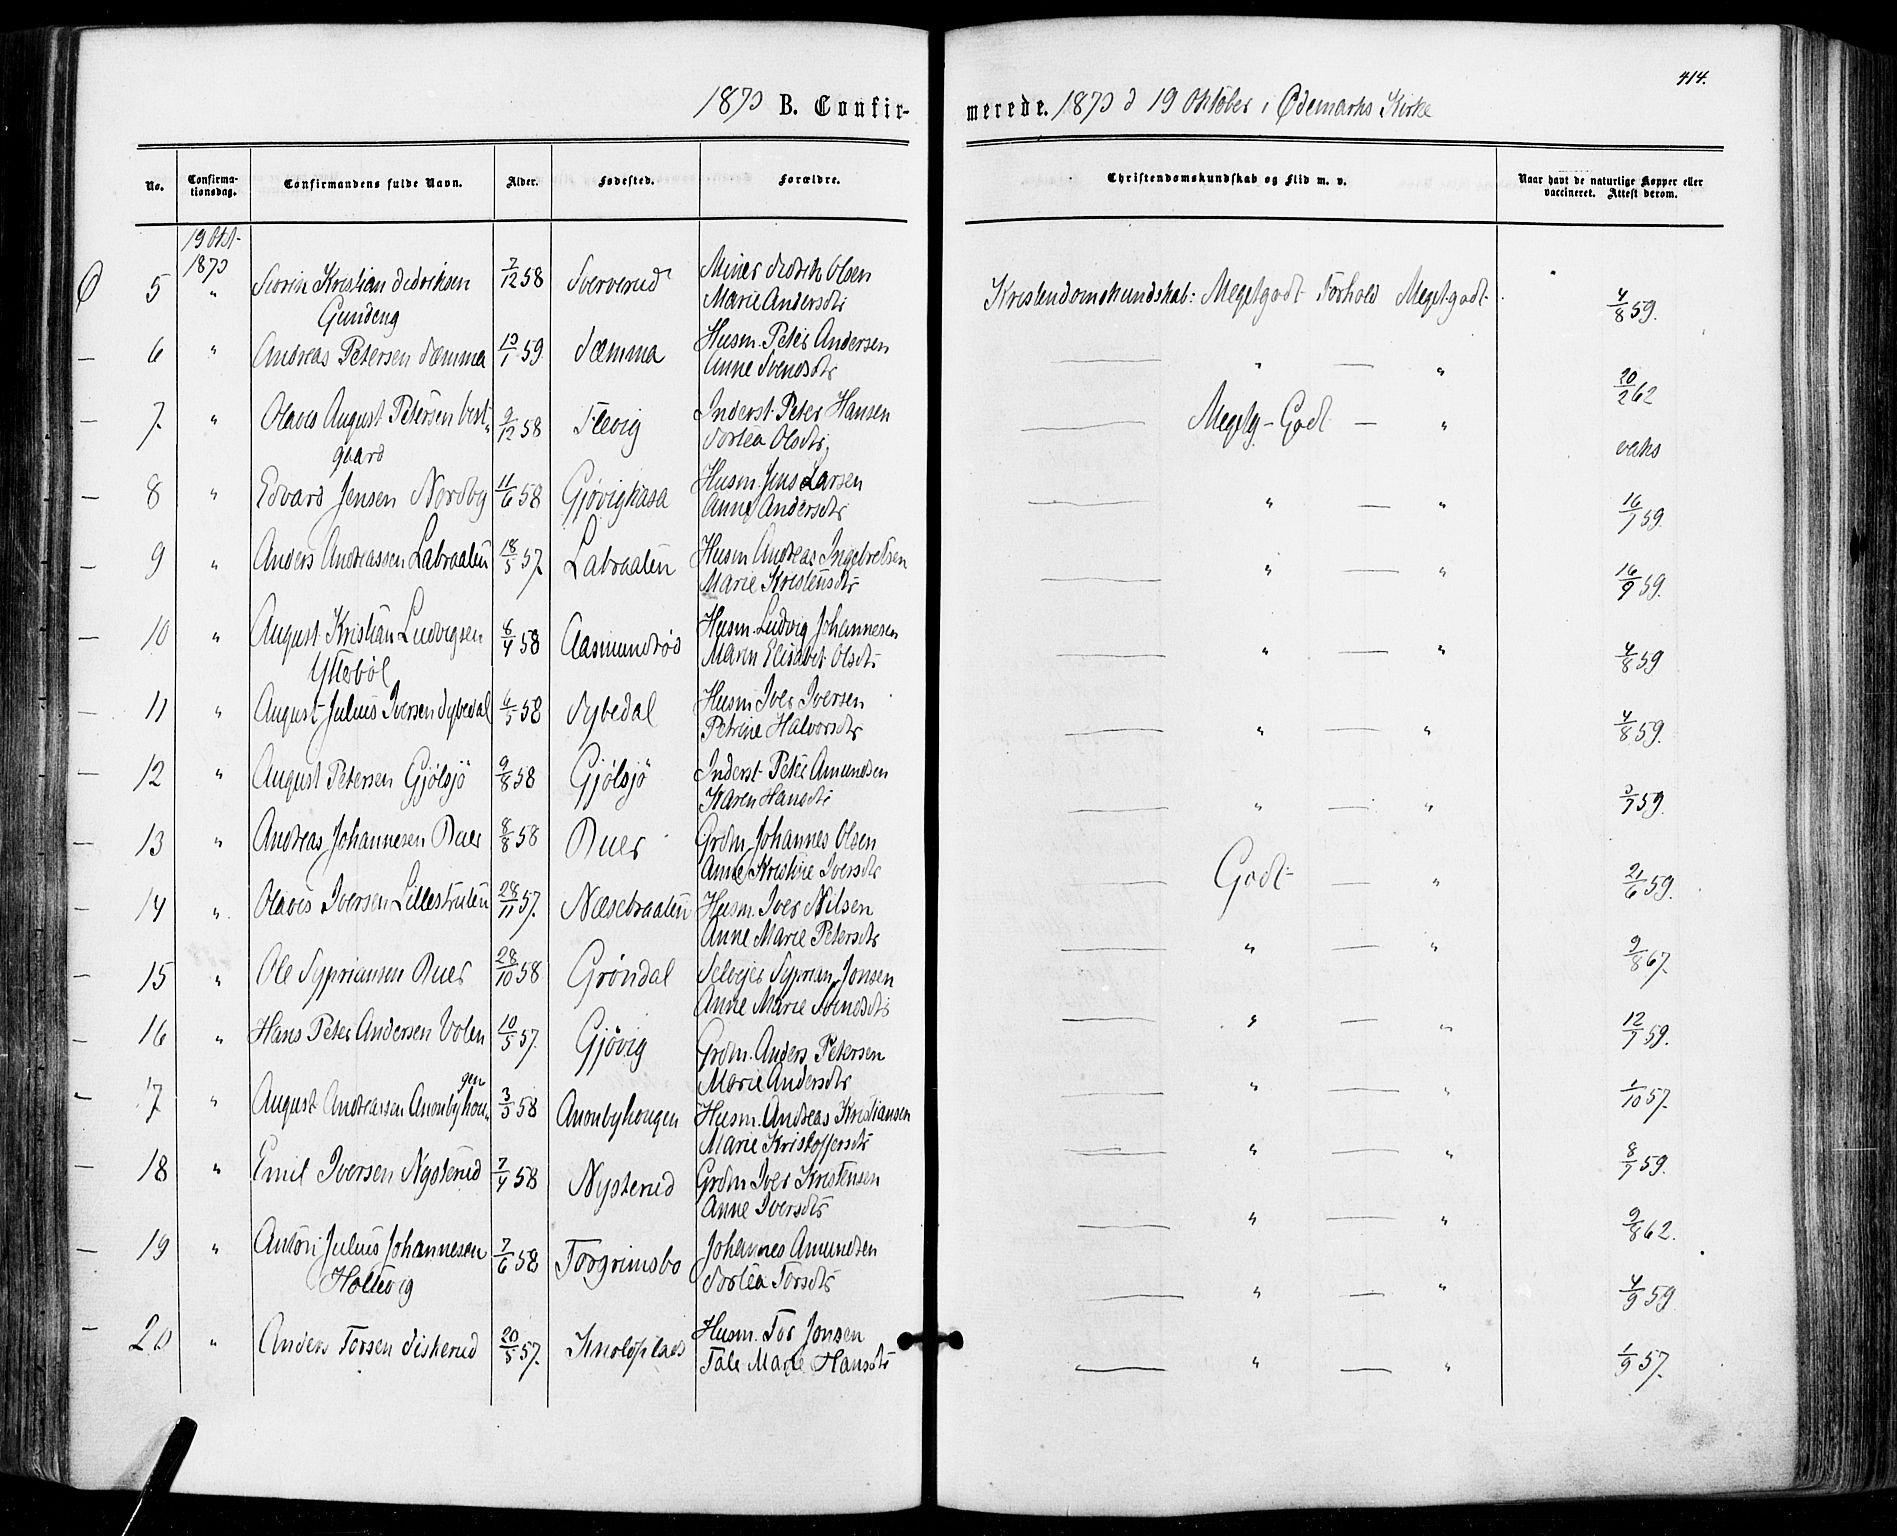 414.
1873 B. Confir-
merede. 1873 d 19 Oktober i Ødemarks Kirke
No. Confirma-tionsdag. Confirmandens fulde Navn. Alder. Fødested. Forældre.
Christendomskundskab og Flid m. v. Naar havt de naturlige Kopper eller vaccineret. Attest derom.
19 Okt-
1873
5 " Søren Kristian Didriksen 7/12 58 Sververud Didrik Olsen
Gundeng Marie Andersdtr
Kristendomskundskab: Megetgodt Forhold Megetgodt 4/8 59.
6 " Andreas Petersen Dæmma 13/1 59 Dæmma Husm. Peter Andersen
Anne Svendsdtr
" — " 20/2 62
7. " Olaves August Petersen Vest- 9/12 58 Flevig Inderst. Peter Hansen
gaard Dortea Olsdtr,
Megetg - Godt — " vaks
8 " Edvard Jensen Nordby 11/6 58 Gjøvigkasa Husm. Jens Larsen
Anne Andersdtr
" — " 16/7 59.
9 " Anders Andreassen Labraaten 18/5 57. Labraaten Husm Andreas Ingebretsen
Marie Kristensdtr
" — " 16/9 59.
10 " August Kristian Ludvigsen 8/4 58 Aasmundrød Husm. Ludvig Johannesen
Ytterbøl Maren Elisabet Olsdtr
" — " 4/8 59
11 " August Julius Iversen Dybedal 6/5 58 Dybedal Husm Iver Iversen
Petrine Halvorsdtr
" — " 4/8 59.
12 " August Petersen Gjølsjö 9/8 58 Gjølsjö Inderst Peter Amundsen
Karen Hansdtr
" — " 3/7 59.
13 " Andreas Johannesen Buer 8/8 58 Buer Grdm. Johannes Olsen
Anne Kristine Iversdtr
Godt — " 21/6 59.
14 " Olaves Iversen Lillestruten 28/11 57. Næsebraaten Husm. Iver Nilsen
Anne Marie Petersdtr
" — " 9/8 67.
15 " Ole Syprianssen Buer 28/10 58 Grøndal Selvejer Syprian Jonsen
Anne Marie Svendsdtr
" — " 12/7 59.
16 " Hans Peter Andersen Volen 10/5 57. Gjøvig Grdm. Anders Petersen
Marie Andersdtr
" — " 1/10 57.
17 " August Andreassen Anonbyhou- 3/3 58 Anonbyhougen Husm. Andreas Kristiansen
gen Marie Kristoffersdtr
" — " 8/7 59.
18 " Emil Iversen Nysterud 7/4 58 Nysterud Grdm Iver Kristensen
Anne Iversdtr
" — " 9/8 62.
19 " Anton Julius Johannesen 7/6 58 Torgrimsbo Johannes Amundsen
Holtevig Dortea Torsdtr
" — " 4/9 59
20 " Anders Torsen Diskerud 20/5 57. Husm. Tor Jonsen
Tale Marie Hansdtr
" — " 1/9 57.